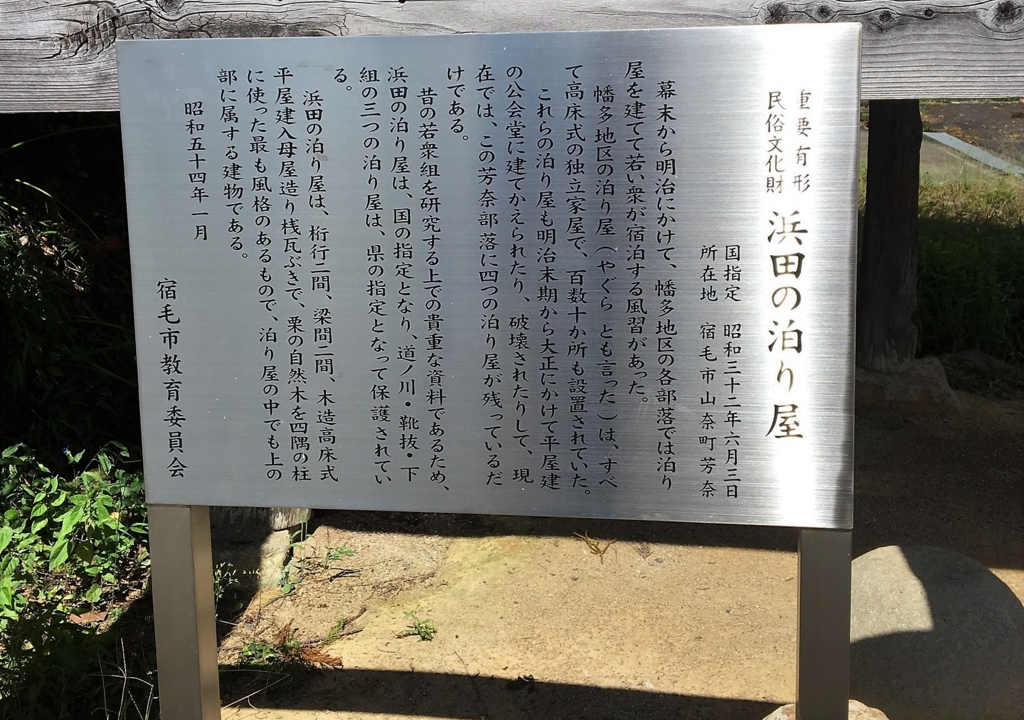 重要有形
民俗文化財
浜田の泊り屋
国指定 昭和三十二年六月三日
所在地 宿毛市山奈町芳奈
幕末から明治にかけて、幡多地区の各部落では泊り
屋を建てて若い衆が宿泊する風習があった。
幡多地区の泊り屋（やぐら とも言った）は、すべ
て高床式の独立家屋で、百数十か所も設置されていた。
これらの泊り屋も明治末期から大正にかけて平屋建
の公会堂に建てかえられたり、破壊されたりして、現
在では、この芳奈部落に四つの泊り屋が残っているだ
けである。
昔の若衆組を研究する上での貴重な資料であるため、
浜田の泊り屋は、国の指定となり、道ノ川・靴抜・下
組の三つの泊り屋は、県の指定となって保護されてい
る。
浜田の泊り屋は、桁行二間、梁間二間、木造高床式
平屋建入母屋造り桟瓦ぶきで、栗の自然木を四隅の柱
に使った最も風格のあるもので、泊り屋の中でも上の
部に属する建物である。
昭和五十四年一月
宿毛市教育委員会